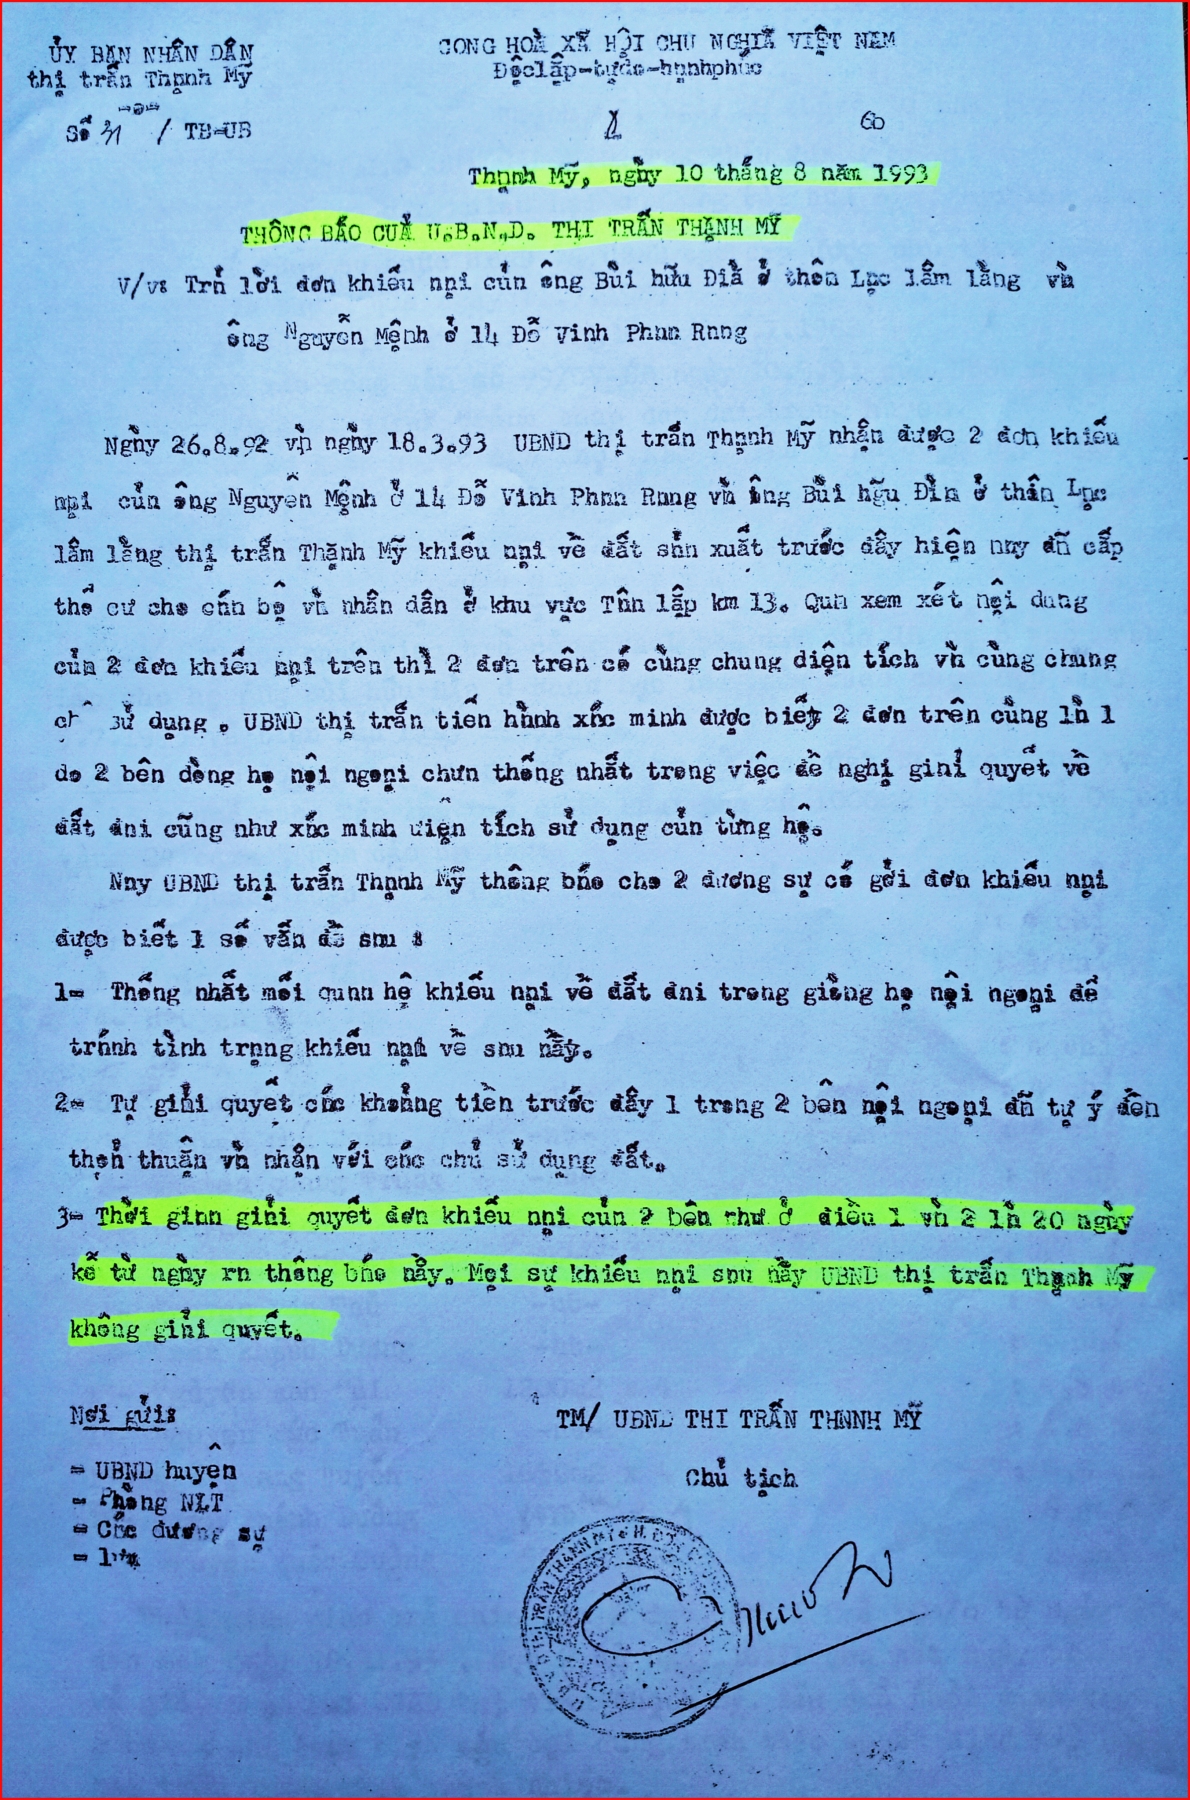 ỦY BAN NHÂN DÂN
thị trấn Thạnh Mỹ
Số 31 / TB-UB
CONG HOÀ XÃ HỘI CHU NGHIÃ VIỆT NAM
Độclập-tựdo-hạnhphúc
60
Thạnh Mỹ, ngày 10 tháng 8 năm 1993
THÔNG BÁO CUẢ U.B.N.D. THỊ TRẤN THẠNH MỸ
V/v: Trả lời đơn khiếu nại của ông Bùi hữu Đià ở thôn Lạc lâm làng và
ông Nguyễn Mệnh ở 14 Đỗ Vinh Phan Rang
Ngày 26.8.92 và ngày 18.3.93 UBND thị trấn Thạnh Mỹ nhận được 2 đơn khiếu
nại của ông Nguyễn Mệnh ở 14 Đỗ Vinh Phan Rang và ông Bùi hữu Đìa ở thôn Lạc
lâm làng thị trấn Thạnh Mỹ khiếu nại về đất sản xuất trước đây hiện nay đã cấp
thổ cư cho cán bộ và nhân dân ở khu vực Tân lập km 13. Qua xem xét nội dung
của 2 đơn khiếu nại trên thì 2 đơn trên có cùng chung diện tích và cùng chung
sử dụng . UBND thị trấn tiến hành xác minh được biết 2 đơn trên cùng là 1
do 2 bên dòng họ nội ngoại chưa thống nhất trong việc đề nghị giải quyết về
đất đai cũng như xác minh diện tích sử dụng của từng hộ.
Nay UBND thị trấn Thạnh Mỹ thông báo cho 2 đương sự có gởi đơn khiếu nại
được biết 1 số vấn đề sau :
1- Thống nhất mối quan hệ khiếu nại về đất đai trong giòng họ nội ngoại để
tránh tình trạng khiếu nại về sau nầy.
2- Tự giải quyết các khoảng tiền trước đây 1 trong 2 bên nội ngoại đã tự ý đền
thoả thuận và nhận với các chủ sử dụng đất.
3- Thời gian giải quyết đơn khiếu nại của 2 bên như ở điều 1 và 2 là 20 ngày
kể từ ngày ra thông báo nầy. Mọi sự khiếu nại sau nầy UBND thị trấn Thạnh Mỹ
không giải quyết.
Nơi gửi:
- UBND huyện
- Phòng NLT
- Các đương sự
- lưu
TM/ UBND THI TRẤN THẠNH MỸ
Chủ tịch